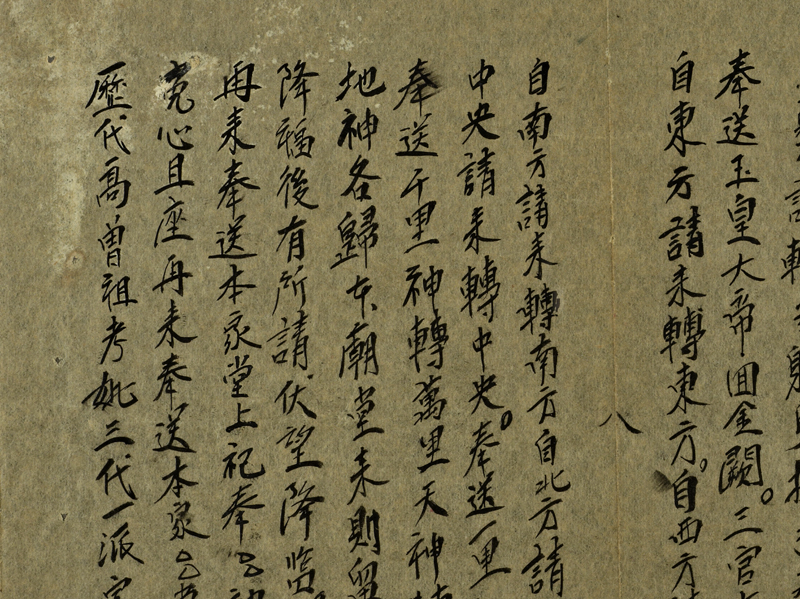 奉送玉皇大帝囬金闕。三官
自東方請来轉東方。自西方
八
自南方請来轉南方自北方請
中央請来轉中央。奉送一里
奉送千里神轉萬里天神
地神各歸本廟堂来則留
降福後有所請伏望降臨
再来奉送本家堂上祀奉
寛心且座再来奉送本家
歷代高曽祖考妣三代一派宗